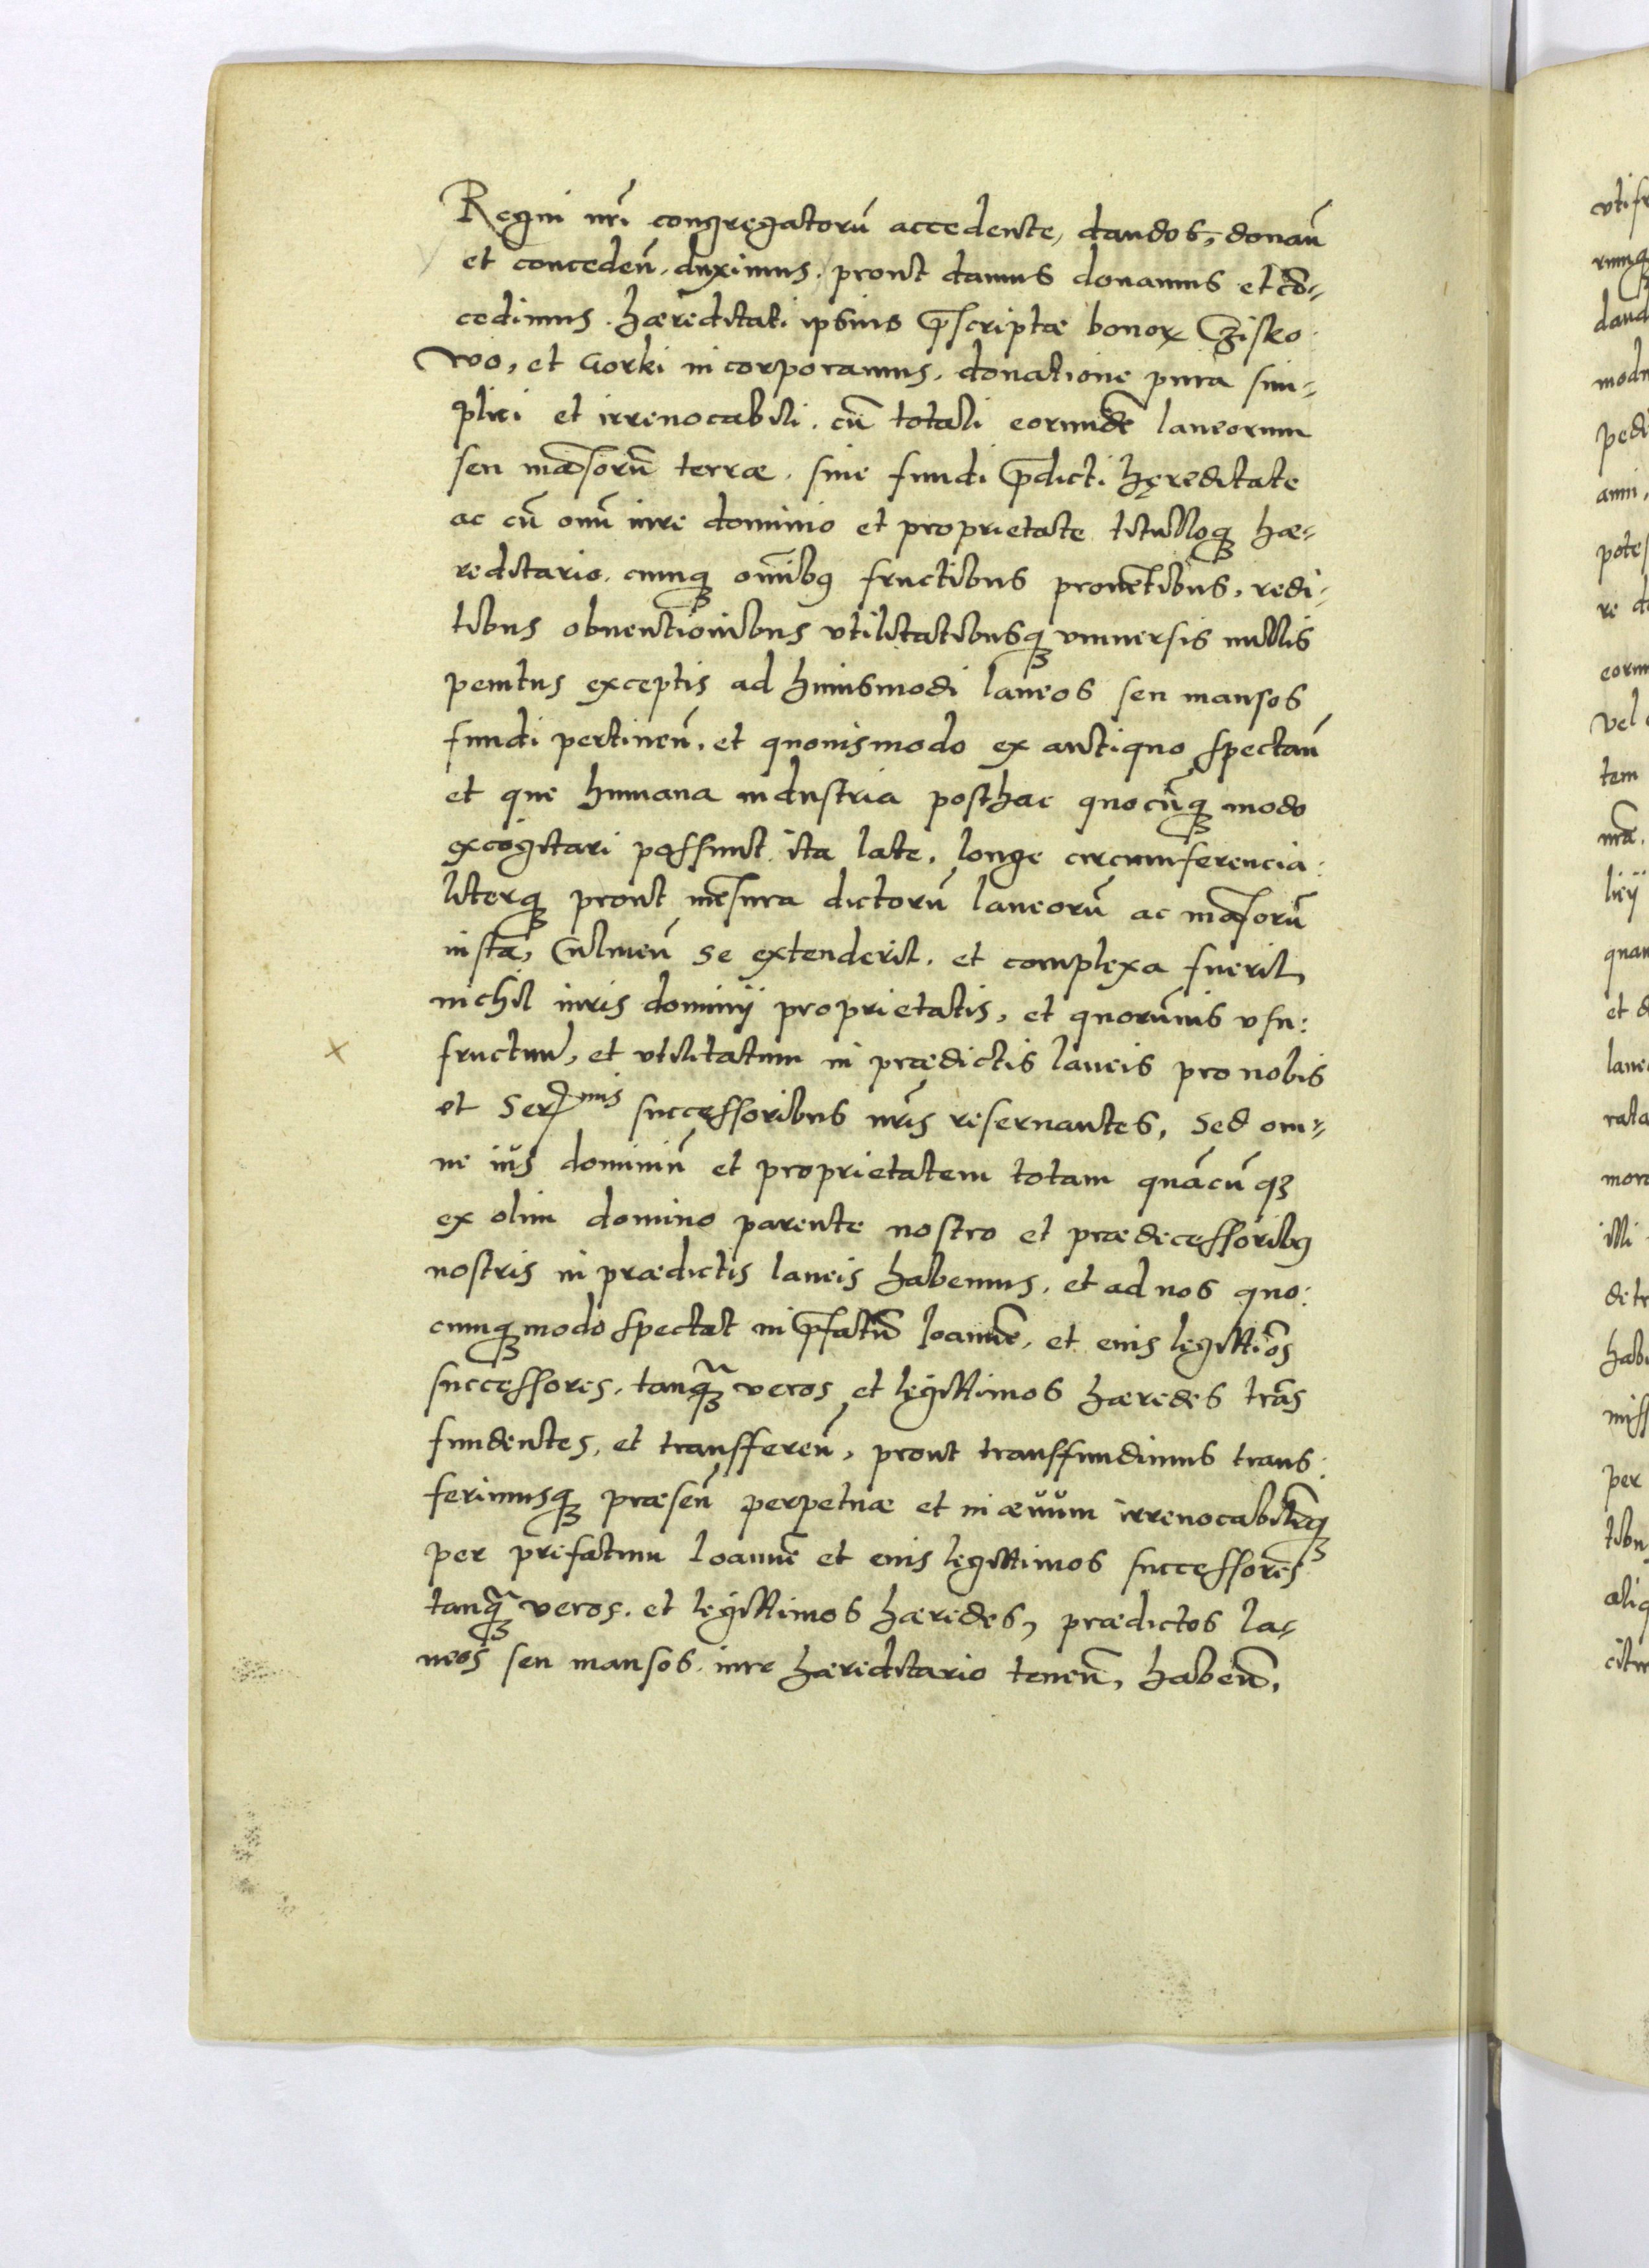 Regni nrĩ congregatorũ accedente, dandos, donañ
et concedeñ. duximus. prout damus donamus et cõ-
cedimus. hæreditati ipsius p̃scriptæ bonoꝝ Czisko
wo, et Gorki incorporamus. donatione pura sim-
plici et irreuocabili. cũ totali eorundẽ laneorum
seu mãsorũ terræ. siue fundi p̃dicti hęreditate
ac cũ omĩ iure dominio et proprietate titulloqꝫ hæ-
reditario. cumqꝫ omĩbꝰ fructibus prouẽtibus, redi-
tibus obuentionibus vtilitatibusqꝫ vniuersis nullis
penitus exceptis ad huiusmodi laneos seu mansos
fundi pertineñ. et quouismodo ex antiquo spectañ
et que humana industria posthac quocũqꝫ modo
excogitari possunt ita late, longe circumferencia:
literqꝫ prout mẽsura dictorũ laneorũ ac mãsorũ
iusta, Culmeñ se extenderit. et complexa fuerit,
nichil iuris dominij proprietatis, et quorũuis vsu:
fructuũ, et vtilitatum in prædictis laneis pro nobis
et Sermis successoribus nrĩs reseruantes, Sed om-
ne ius dominiũ et proprietatem totam quãcũqꝫ
ex olim domino parente nostro et prædecessoribꝰ
nostris in prædictis laneis habemus. et ad nos quo:
cumqꝫ modo spectat in p̃fatũ Ioannẽ, et eius legittiõs
successores, tanqꝫ̃ veros et legittimos hæredes trãs
fundentes, et transffereñ, prout transffundimus trans:
ferimusqꝫ præseñ perpetuæ et in æuum irreuocabilt̃erqꝫ
per prefatum Ioannẽ et eius legittimos successores
tanqꝫ̃ veros. et legittimos hæredes, prædictos la-
neos seu mansos. iure hæreditario teneñ, habeñ,